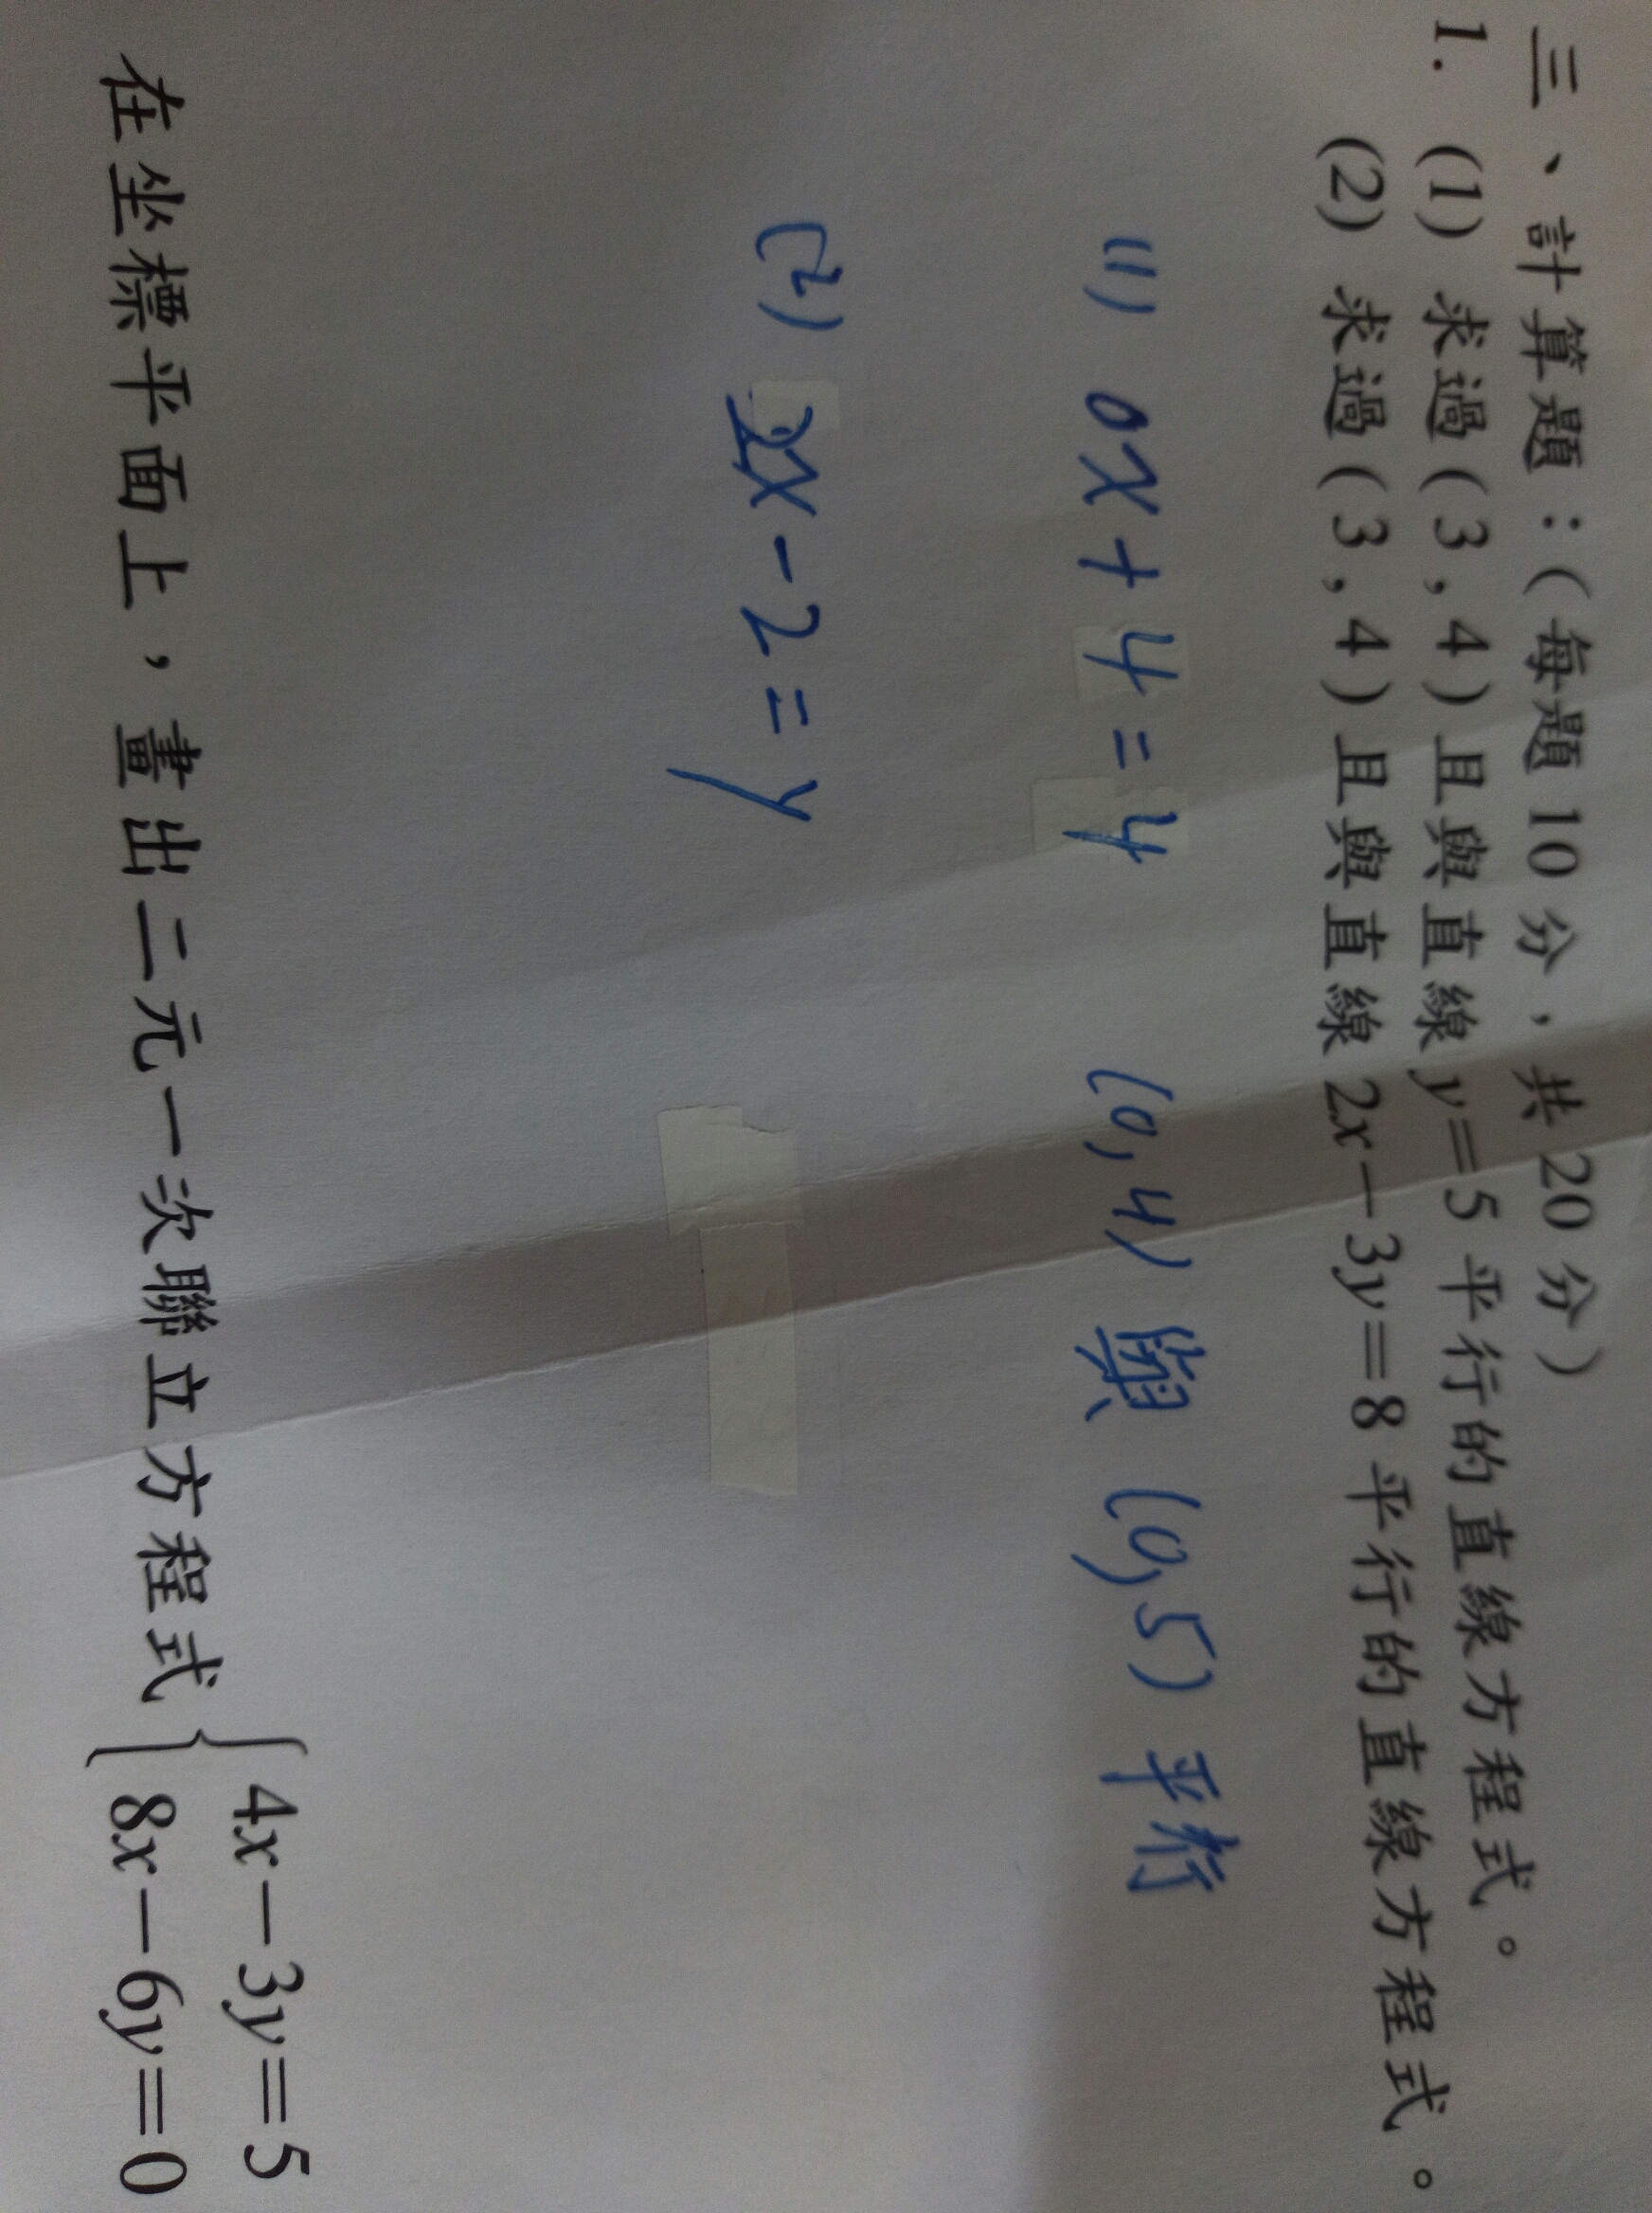 三、計算題：(每題 10 分，共 20 分)
1. (1) 求過(3,4)且與直線 y=5 平行的直線方程式。
(2) 求過(3,4)且與直線 2x-3y=8 平行的直線方程式。
(1) 0x+4=y (0,4)與(0,5)平行
(2) 2x-2=y
在坐標平面上，畫出二元一次聯立方程式 { 4x-3y=5
8x-6y=0